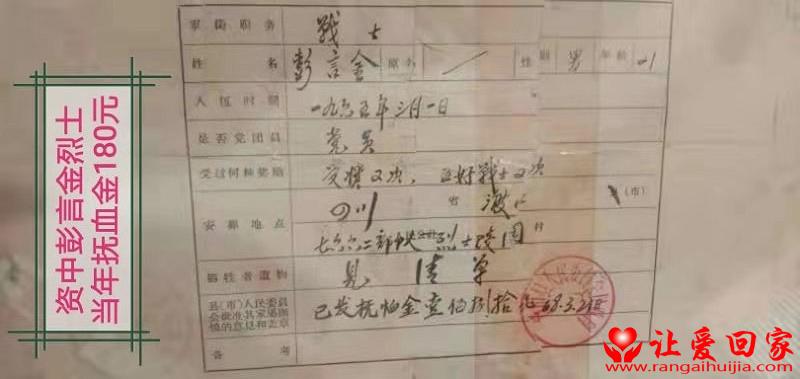 资中彭言金烈士
当年抚血金180元
军衔职务 战士
姓名 彭言金 原名 性别 男 年龄 21
入伍时期 一九六五年三月一日
是否党团员 党员
受过何种奖励 受奖又次，五好战士又次
安葬地点 四川 省 渡口 (市)
七六六二部队 烈士陵园 村
牺牲者遗物 见 清单
县(市)人民委员
备考 已发抚恤金壹佰捌拾元 68.3.
让爱回家
www.rangaihuijia.com